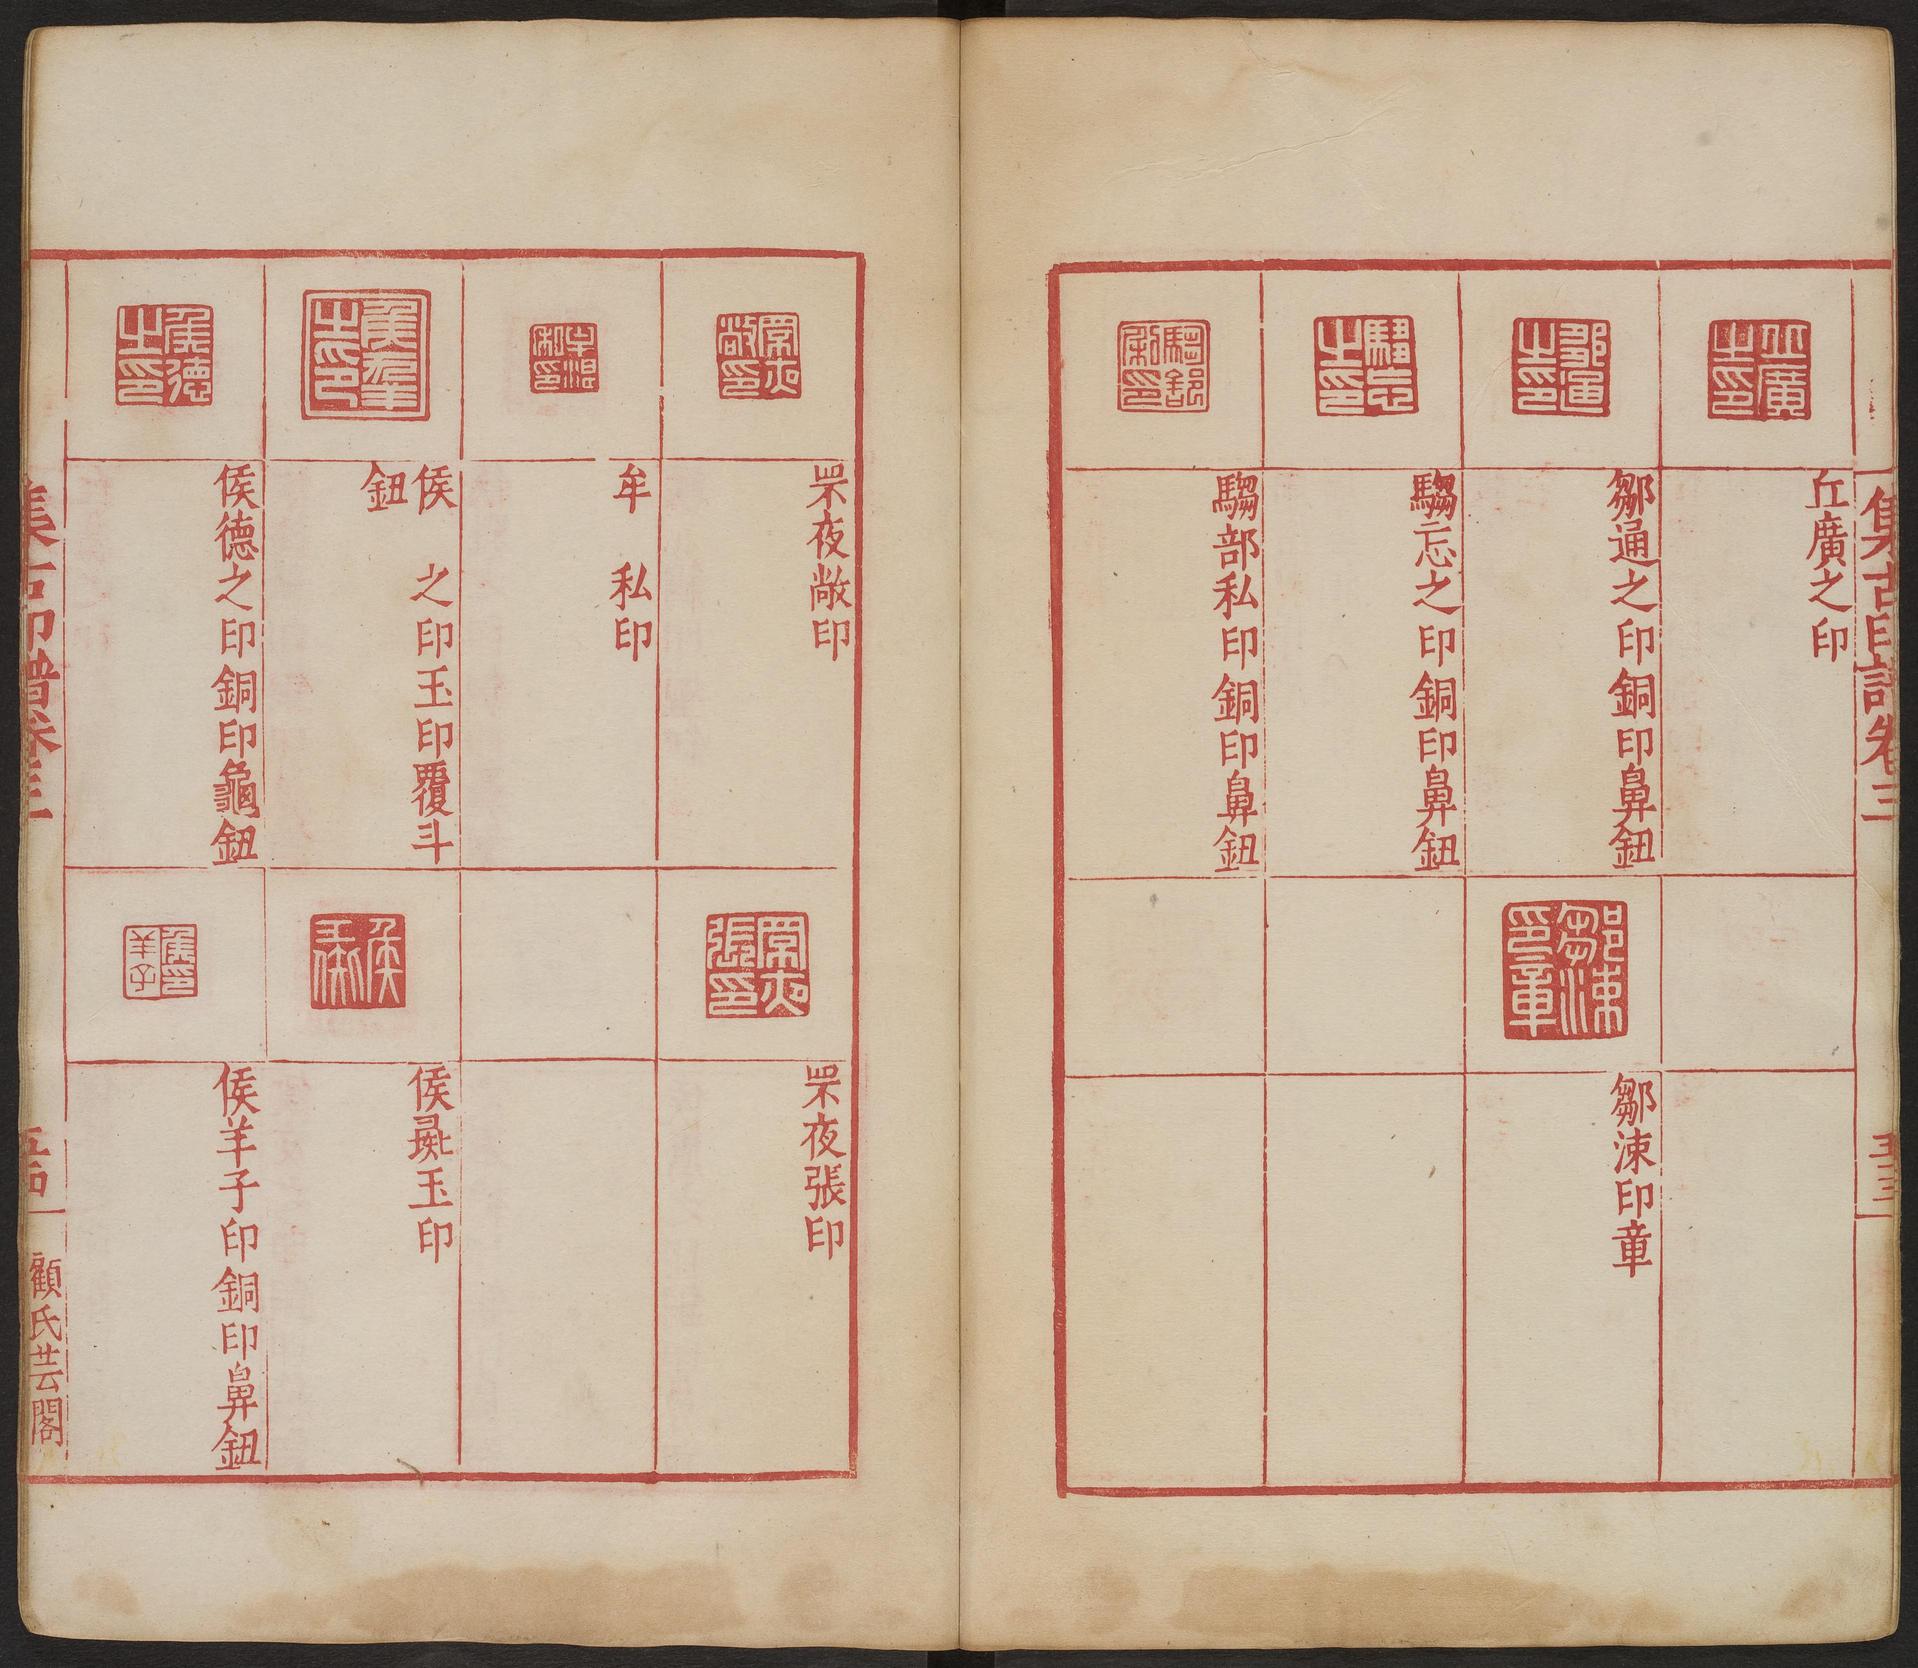 集古印譜卷三
五三
丘廣之印
鄒通之印銅印鼻鈕
鄒涑印章
騶忘之印銅印鼻鈕
騶部私印銅印鼻鈕
罘夜敞印
罘夜張印
牟 私印
侯 之印玉印覆斗
鈕
侯 玉印
侯德之印銅印龜鈕
侯羊子印銅印鼻鈕
集古印譜卷三
五四
顧氏芸閣